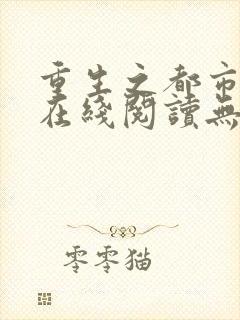 重生之都市
在綫閱讀無
零零猫